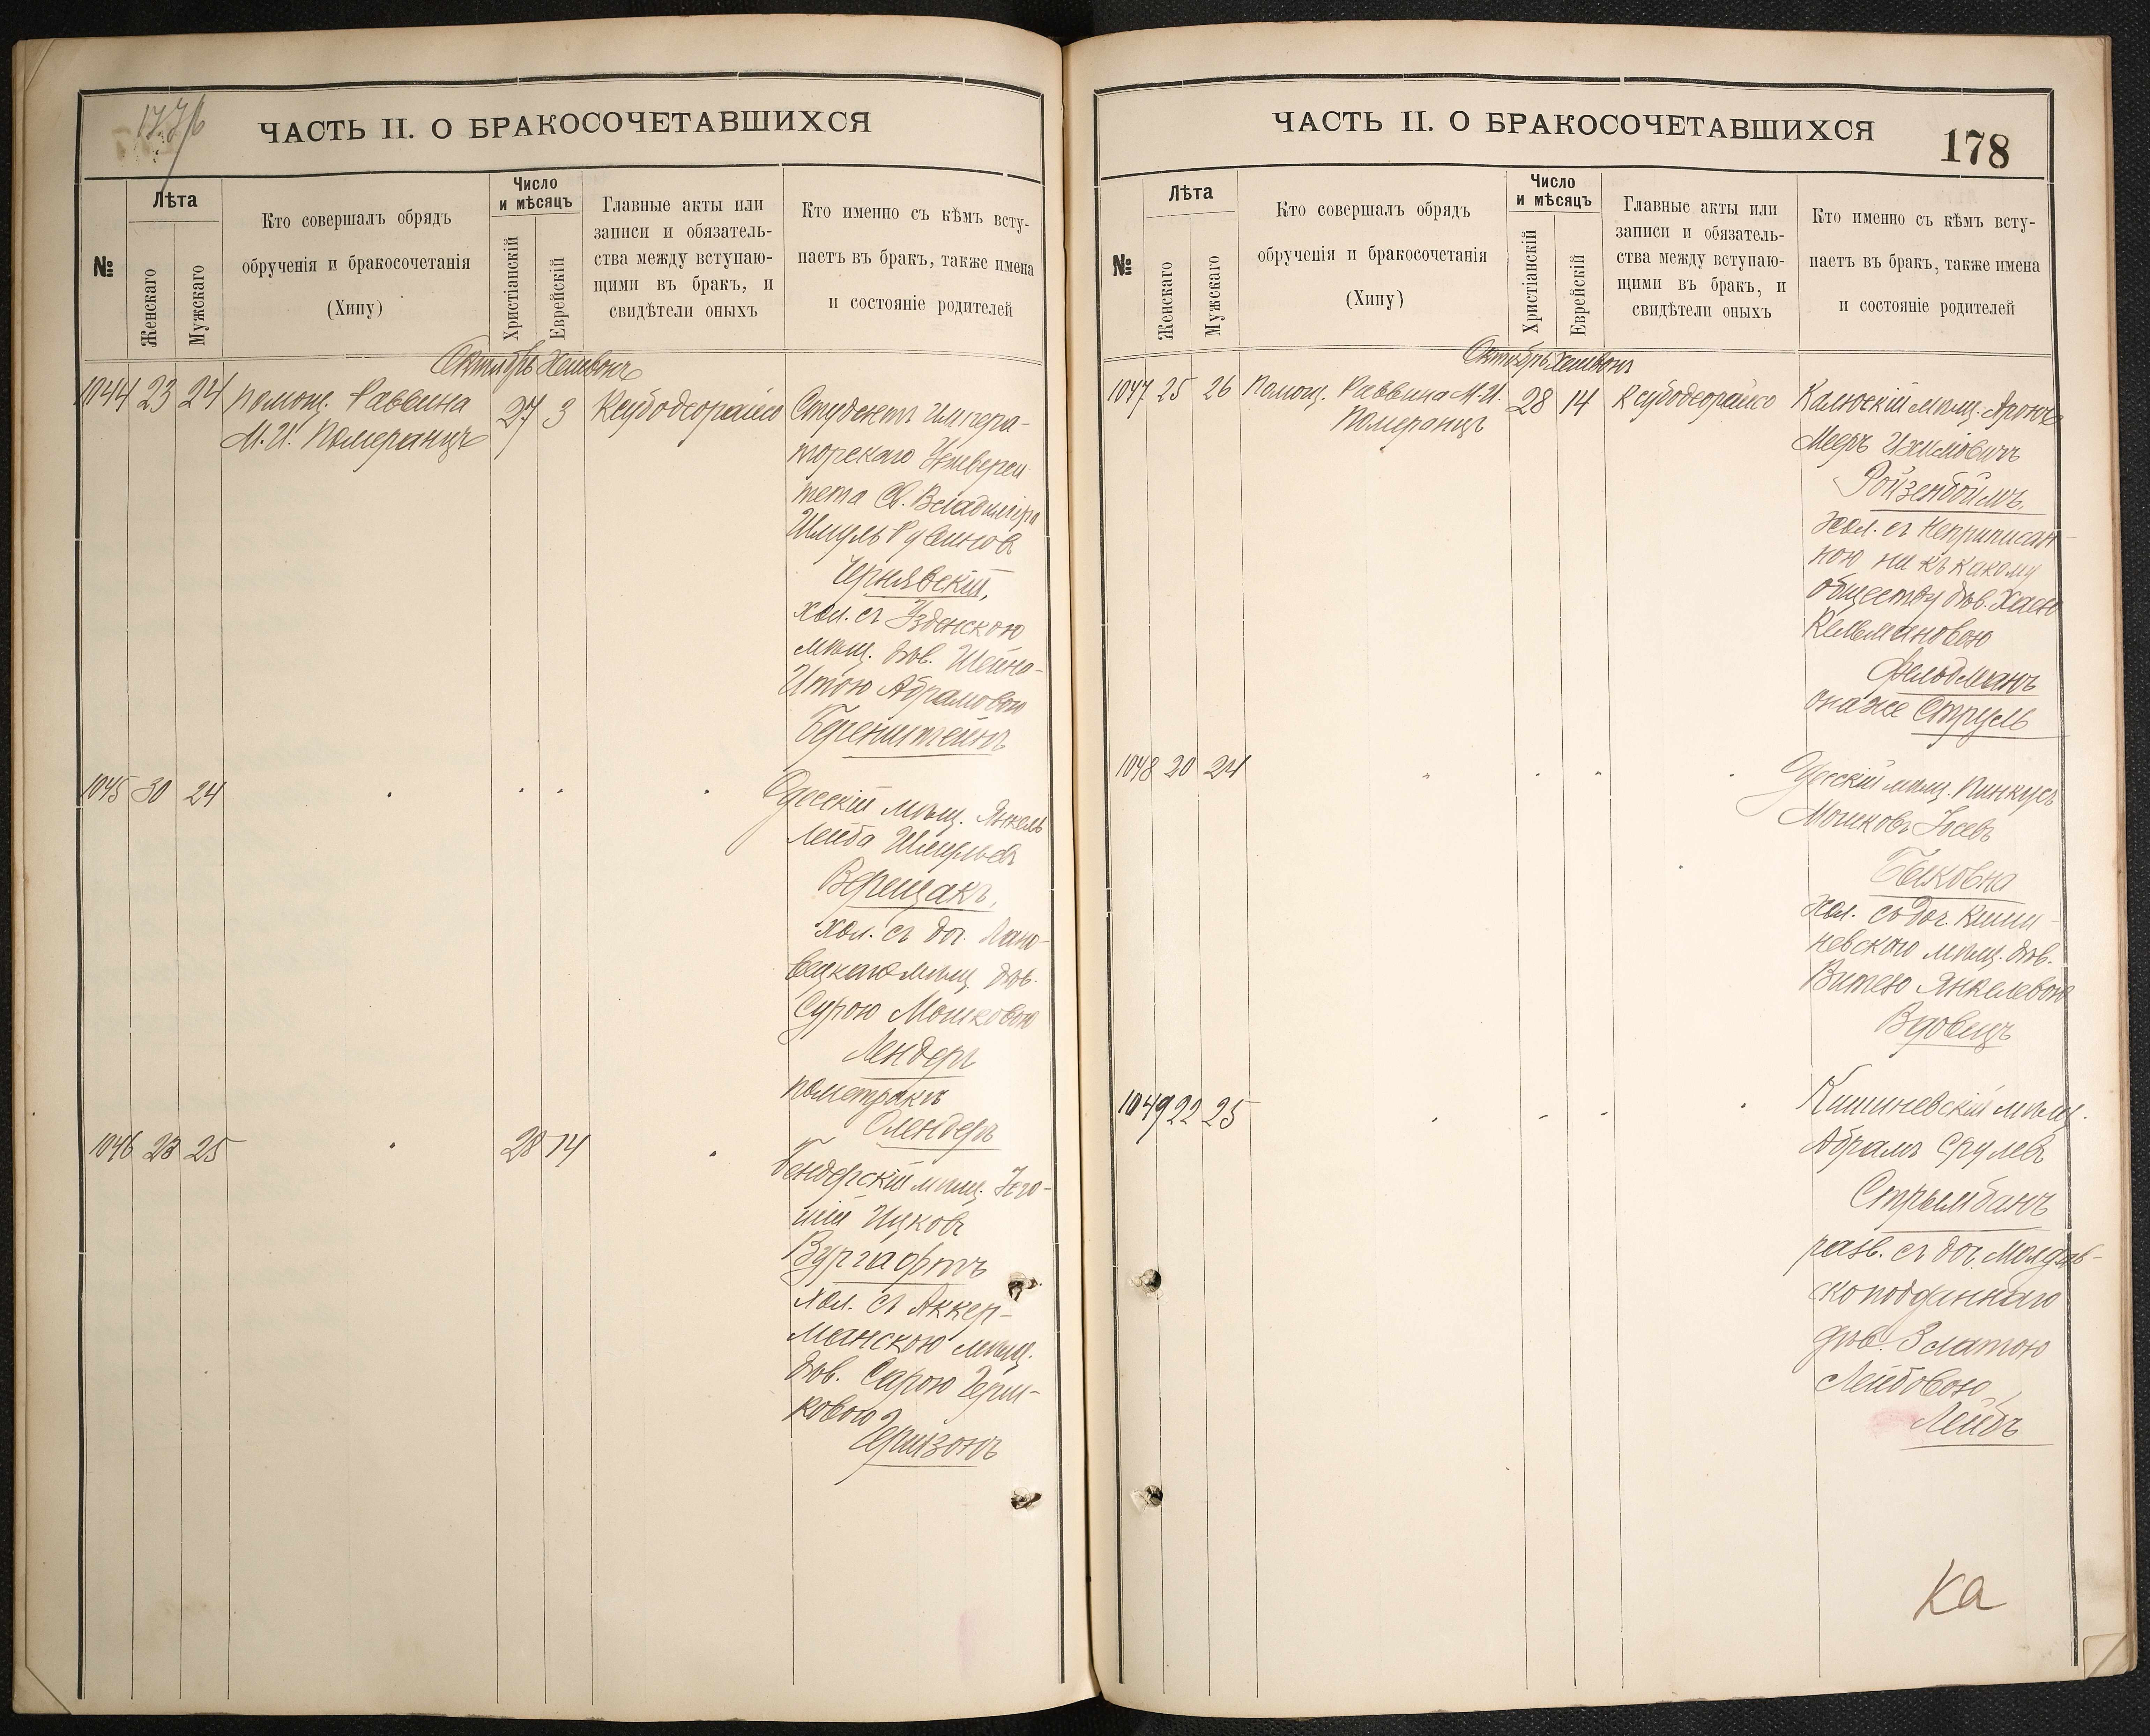 177/6
ЧАСТЬ II. О БРАКОСОЧЕТАВШИХСЯ
№
Лѣта
Женскаго
Мужскаго
Кто совершалъ обрядъ
обрученія и бракосочетанія
(Хипу)
Число
и мѣсяцъ
Христіанскій
Еврейскій
Главные акты или
записи и обязатель-
ства между вступаю-
щими въ бракъ, и
свидѣтели оныхъ
Кто именно съ кѣмъ всту-
паетъ въ бракъ, также имена
и состояніе родителей
Октябрь Хешвонъ
1044 23 24 Помощ. Раввина
М. И. Померанцъ
27 3 Ксубодеорайсо
Студентъ Импера-
торскаго Универси
тета Св. Владиміра
Шмуль Рувинов
Чернявскій,
хол. съ Узденскою
мѣщ. дѣв. Шейна-
Итою Абрамовою
Беренштейнъ
1045 30 24
Одесскій мѣщ. Янкель
Лейба Шмулев
Верещакъ,
хол. съ доч. Лано-
вецкаго мѣщ. дѣв.
Сурою Мошковою
Лендеръ
по метрикѣ
Слендеръ
1046 23 25
28 14
Бендерскій мѣщ.
Ицковъ
Вургафтъ
хол. съ Аккер-
манскою мѣщ.
дѣв. Сарою Герш-
ковою
Гершзонъ
ЧАСТЬ II. О БРАКОСОЧЕТАВШИХСЯ
178
№
Лѣта
Женскаго
Мужскаго
Кто совершалъ обрядъ
обрученія и бракосочетанія
(Хипу)
Число
и мѣсяцъ
Христіанскій
Еврейскій
Главные акты или
записи и обязатель-
ства между вступаю-
щими въ бракъ, и
свидѣтели оныхъ
Кто именно съ кѣмъ всту-
паетъ въ бракъ, также имена
и состояніе родителей
Октябрь Хешвонъ
1047 25 26 Помощ. Раввина М. И.
Померанцъ
28 14 Ксубодеорайсо
Калюскій мѣщ. Аронъ
Мееръ Ихиловичъ
Ройзенбоймъ,
хол. съ неприписан-
ною ни къ какому
обществу дѣв. Хаею
Кельмановою
Фельдманъ
она же Струль
1048 20 24
Одесскій мѣщ. Пинкусъ
Мошковъ Іосевъ
Быковна
хол. съ доч. Киши-
невскаго мѣщ. дѣв.
Витею Янкелевою
Вдовецъ
1049 22 25
Кишиневскій мѣщ.
Абрамъ Срулев
Стрымбанъ
разв. съ доч. Молдав-
скоподданнаго
дѣв. Златою
Лейбовою
Лейбъ
Ка